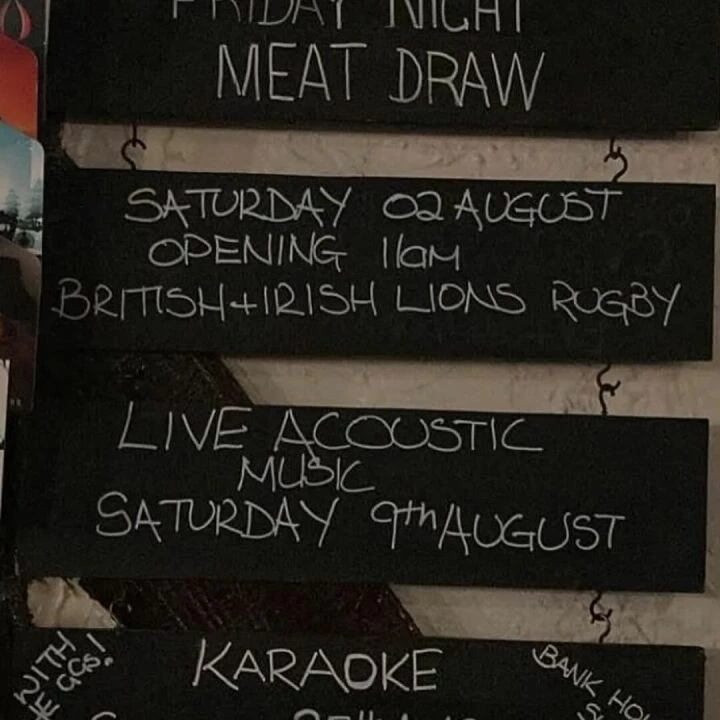 FRIDAY NIGHT
MEAT DRAW
SATURDAY 02 AUGUST
OPENING 11am
BRITISH+IRISH LIONS RUGBY
LIVE ACOUSTIC
MUSIC
SATURDAY 9th AUGUST
WITH
GGS!
KARAOKE
BANK HOL